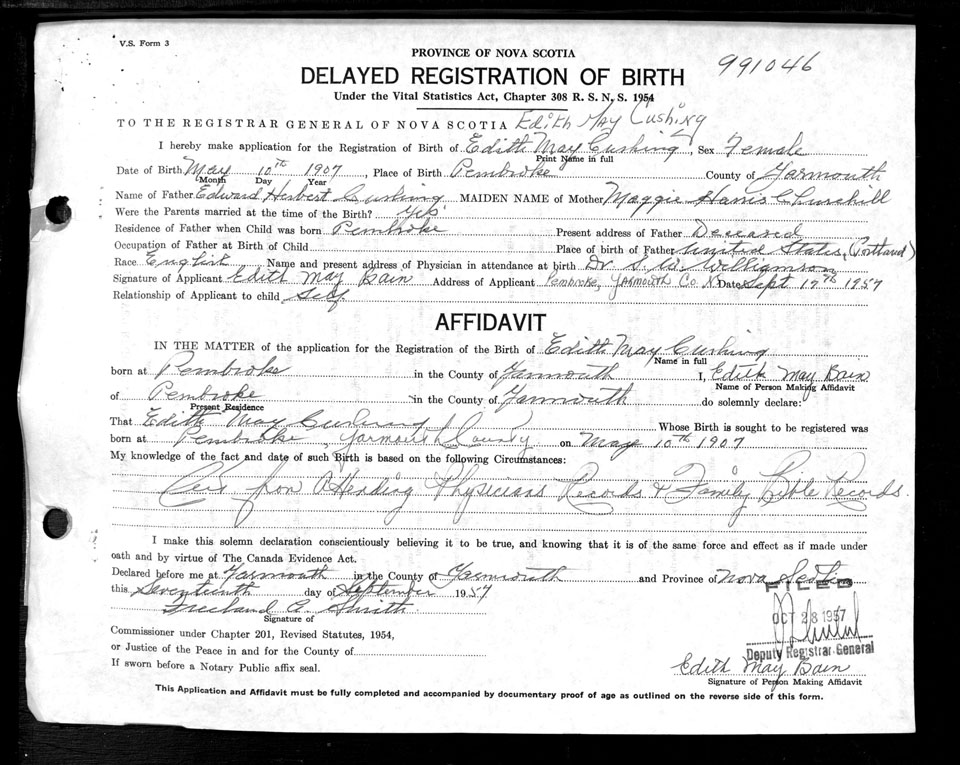 V.S. Form 3
PROVINCE OF NOVA SCOTIA
991046
DELAYED REGISTRATION OF BIRTH
Under the Vital Statistics Act, Chapter 308 R. S. N. S. 1954
TO THE REGISTRAR GENERAL OF NOVA SCOTIA Edith May Cushing
I hereby make application for the Registration of Birth of Edith May Cushing, Sex Female
Print Name in full
Date of Birth May 10th 1907, Place of Birth Pembroke County of Yarmouth
Month Day Year
Name of Father Edward Herbert Cushing MAIDEN NAME of Mother Maggie Harris Churchill
Were the Parents married at the time of the Birth? Yes
Residence of Father when Child was born Pembroke Present address of Father Deceased
Occupation of Father at Birth of Child Place of birth of Father United States, (Portland)
Race English Name and present address of Physician in attendance at birth Dr. S. W. Williamson
Signature of Applicant Edith May Bain Address of Applicant Pembroke, Yarmouth Co. N.S. Date Sept 17th 1957
Relationship of Applicant to child Self
AFFIDAVIT
IN THE MATTER of the application for the Registration of the Birth of Edith May Cushing
Name in full
born at Pembroke in the County of Yarmouth I, Edith May Bain
Name of Person Making Affidavit
of Pembroke in the County of Yarmouth do solemnly declare:
Present Residence
That Edith May Cushing Whose Birth is sought to be registered was
born at Pembroke, Yarmouth County on May 10th 1907
My knowledge of the fact and date of such Birth is based on the following Circumstances:
from Attending Physicians Records & Family Bible Records.
I make this solemn declaration conscientiously believing it to be true, and knowing that it is of the same force and effect as if made under
oath and by virtue of The Canada Evidence Act.
Declared before me at Yarmouth in the County of Yarmouth and Province of Nova Scotia
this Seventeenth day of September 1957
FILED
Freeland A. Smith
Signature of
OCT 28 1957
Commissioner under Chapter 201, Revised Statutes, 1954,
or Justice of the Peace in and for the County of
Deputy Registrar General
If sworn before a Notary Public affix seal.
Edith May Bain
Signature of Person Making Affidavit
This Application and Affidavit must be fully completed and accompanied by documentary proof of age as outlined on the reverse side of this form.